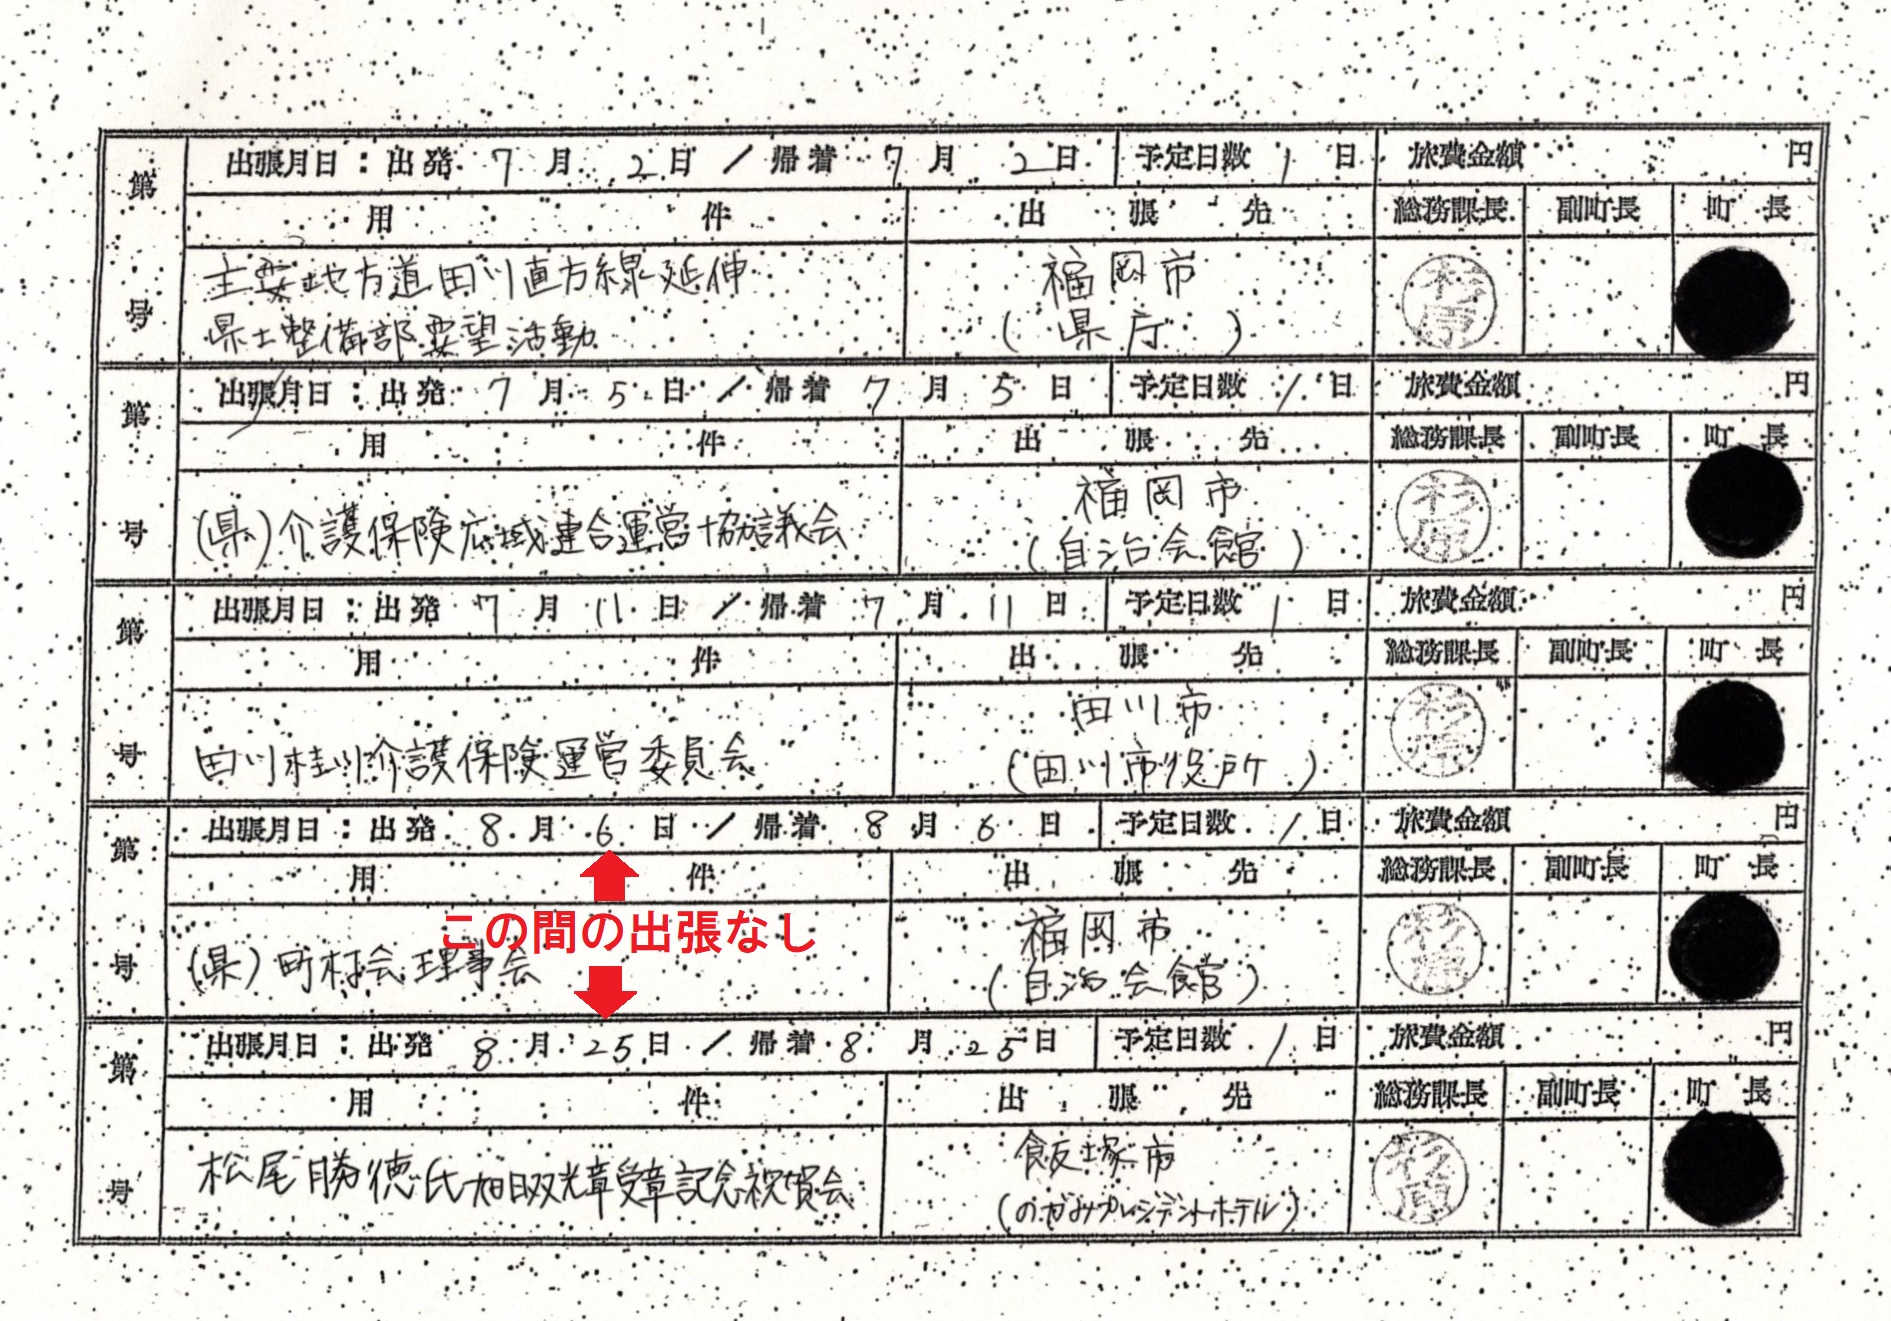 第 号
出張月日：出発 7月 2日 ／ 帰着 7月 2日 予定日数 1日 旅費金額 円
用件 出張先 総務課長 副町長 町長
主要地方道田川直方線延伸 福岡市
県土整備部要望活動 （県庁）
第 号
出張月日：出発 7月 5日 ／ 帰着 7月 5日 予定日数 1日 旅費金額 円
用件 出張先 総務課長 副町長 町長
福岡市
（県）介護保険広域連合運営協議会 （自治会館）
杉原
第 号
出張月日：出発 7月 11日 ／ 帰着 7月 11日 予定日数 1日 旅費金額 円
用件 出張先 総務課長 副町長 町長
田川市
田川桂川介護保険運営委員会 （田川市役所）
第 号
出張月日：出発 8月 6日 ／ 帰着 8月 6日 予定日数 1日 旅費金額 円
用件 出張先 総務課長 副町長 町長
この間の出張なし
福岡市
（県）町村会理事会 （自治会館）
第 号
出張月日：出発 8月 25日 ／ 帰着 8月 25日 予定日数 1日 旅費金額 円
用件 出張先 総務課長 副町長 町長
飯塚市
松尾勝徳氏旭日双光章受章記念祝賀会 （のがみプレジデントホテル）